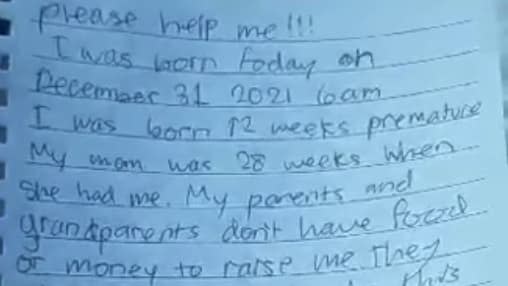 please help me!!!
I was born today on
December 31 2021 6am
I was born 12 weeks premature
My mom was 28 weeks when
she had me. My parents and
grandparents don't have food
or money to raise me they
this